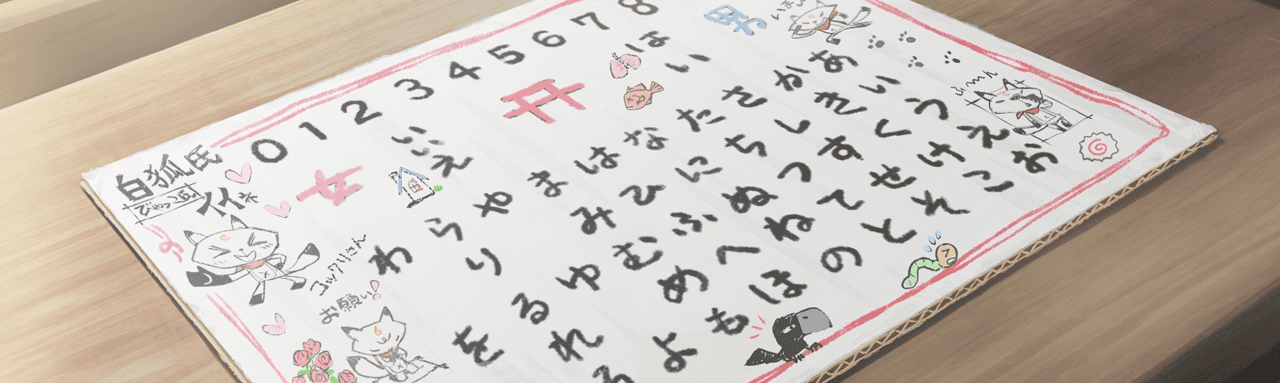 白狐氏
びゃっこ氏
コックリさん
お願い!
0 1 2 3 4 5 6 7 8
男
女
はい
いいえ
ふーん
あいうえお
かきくけこ
さしすせそ
たちつてと
なにぬねの
はひふへほ
まみむめも
やゆよ
らりるれろ
わを